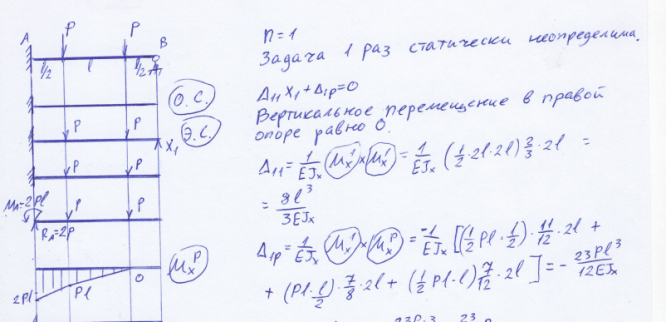 A P P B
l/2 l l/2
О.С.
P P Э.С.
X₁
P P
M_A=2Pl P P
R_A=2P
M_x^P
2Pl Pl 0
n=1
Задача 1 раз статически неопределима.
Δ₁₁X₁+Δ₁p=0
Вертикальное перемещение в правой
опоре равно 0.
Δ₁₁= 1/EJx (M_x^1)×(M_x^1) = 1/EJx (1/2·2l·2l) 2/3·2l =
= 8l³/3EJx
Δ₁p= 1/EJx (M_x^1)×(M_x^P) = -1/EJx [(1/2 Pl·l/2)·11/12·2l +
+ (Pl·l/2)·7/8·2l + (1/2 Pl·l) 7/12·2l ] = - 23Pl³/12EJx